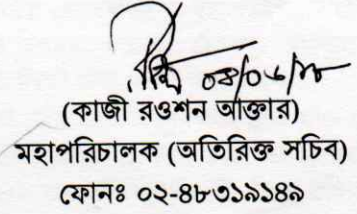 (কাজী রওশন আক্তার)
মহাপরিচালক (অতিরিক্ত সচিব)
ফোনঃ ০২-৪৮৩১৯১৪৯